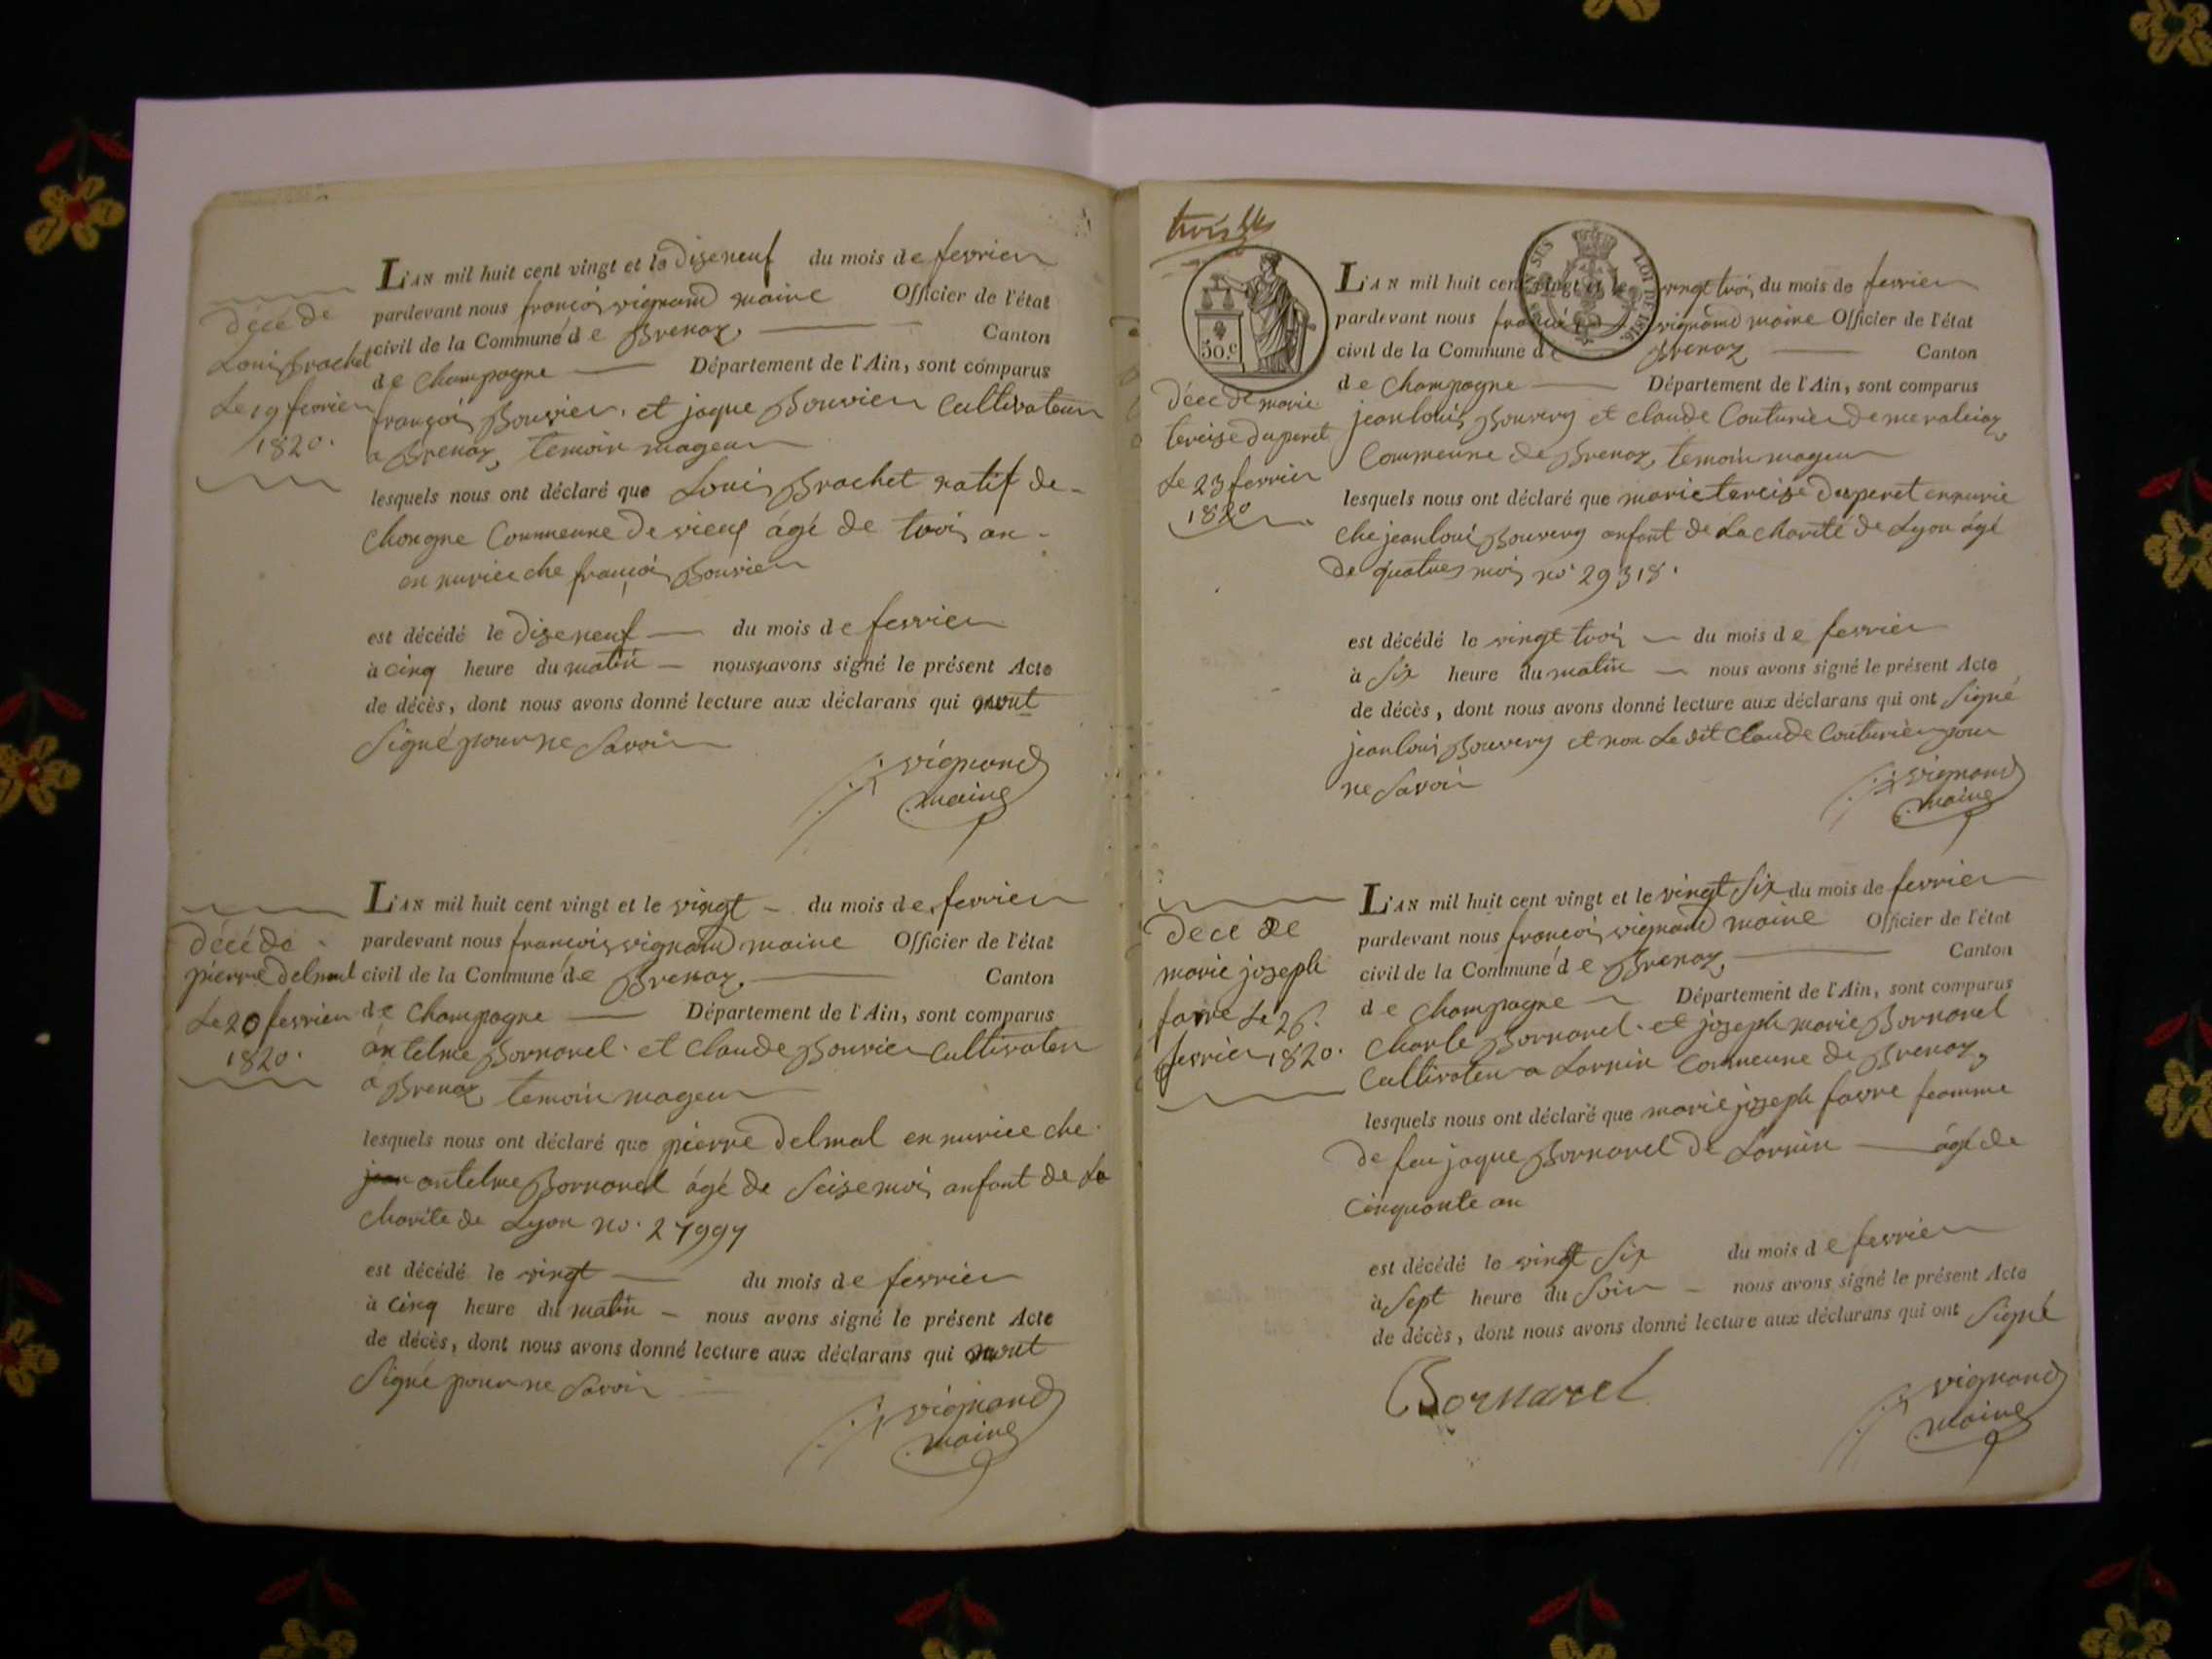 décé de
Louis brochet
Le 19 fevrier
1820.
L'AN mil huit cent vingt et le dizeneuf du mois de fevrier
pardevant nous françois vignand maire Officier de l'état
civil de la Commune de Brenaz, Canton
de Champagne Département de l'Ain, sont comparus
françois Bouvier et jaque Bouvier Cultivateur
a Brenaz, temoin mageur
lesquels nous ont déclaré que Loui Brochet natif de
Chongne Commeune de vieux âgé de trois an
en nurice che françois Bouvier
est décédé le dizeneuf du mois de fevrier
à cinq heure du matin nous navons signé le présent Acte
de décès, dont nous avons donné lecture aux déclarans qui nont
Signé pour ne Savoir
vignand
maire
décé de
pierre delmal
Le 20 fevrier
1820.
L'AN mil huit cent vingt et le vingt du mois de fevrier
pardevant nous françois vignand maire Officier de l'état
civil de la Commune de Brenaz, Canton
de Champagne Département de l'Ain, sont comparus
antelme Bornarel et Claude Bouvier Cultivateur
a Brenaz temoin mageur
lesquels nous ont déclaré que pierre delmal en nurice che
jean antelme Bornarel âgé de Seize mois anfant de La
Charite de Lyon no. 27997
est décédé le vingt du mois de fevrier
à cinq heure du matin nous avons signé le présent Acte
de décès, dont nous avons donné lecture aux déclarans qui nont
Signé pour ne Savoir
vignand
maire
trois
50.c
EN SUS
LOI DE 1816.
déce de marie
tereise duperet
Le 23 fevrier
1820
L'AN mil huit cent vingt et le vingt trois du mois de fevrier
pardevant nous françois vignand maire Officier de l'état
civil de la Commune de Brenaz Canton
de Champagne Département de l'Ain, sont comparus
jean louis Bouvery et claude Couturier de meraleiaz,
Commeune de Brenaz, temoin mageur
lesquels nous ont déclaré que marie tereise duperet en nurice
che jean loui Bouvery anfant de La Charité de Lyon âgé
de quatres mois no 29318.
est décédé le vingt trois du mois de fevrier
à Six heure du matin nous avons signé le présent Acte
de décès, dont nous avons donné lecture aux déclarans qui ont Signé
jean loui Bouvery et non Le dit Claude Couturier pour
ne Savoir
vignand
maire
déce de
marie joseph
favre Le 26.
fevrier 1820.
L'AN mil huit cent vingt et le vingt Six du mois de fevrier
pardevant nous françois vignand maire Officier de l'état
civil de la Commune de Brenaz, Canton
de Champagne Département de l'Ain, sont comparus
Charle Bornarel et joseph marie Bornarel
Cultivateur a Lornin Commeune de Brenaz,
lesquels nous ont déclaré que marie joseph favre feamme
de feu jaque Bornarel de Lornin âgé de
Cinquante an
est décédé le vingt Six du mois de fevrier
à Sept heure du Soir nous avons signé le présent Acte
de décès, dont nous avons donné lecture aux déclarans qui ont Signé
Bornarel
vignand
maire